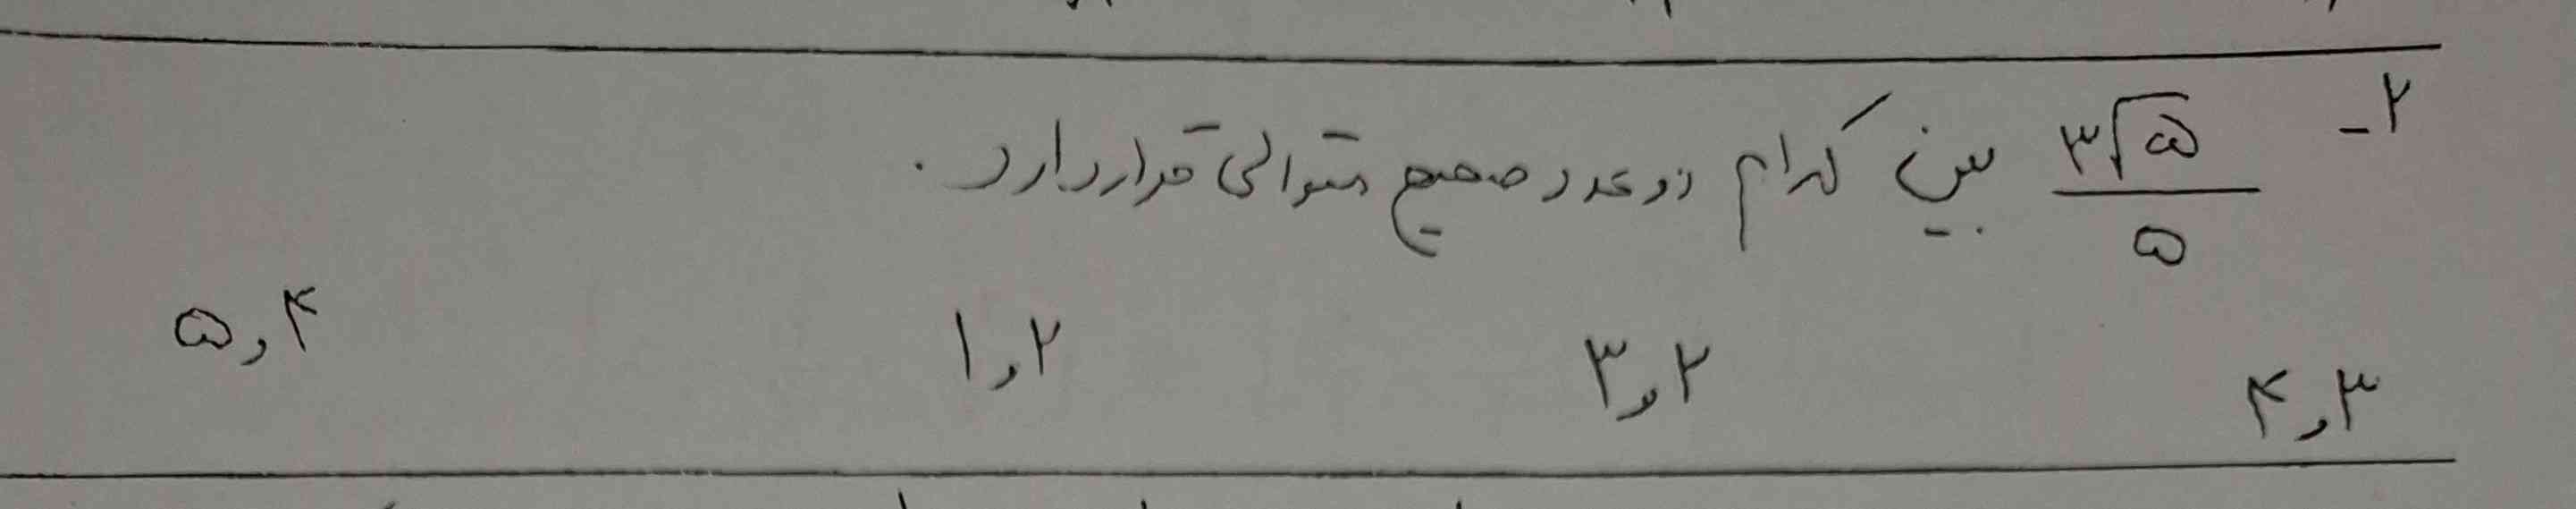 ۲- ۳√۵ / ۵ بین کدام دو عدد صحیح متوالی قرار دارد.
۳ و ۴   ۲ و ۳   ۲ و ۱   ۴ و ۵